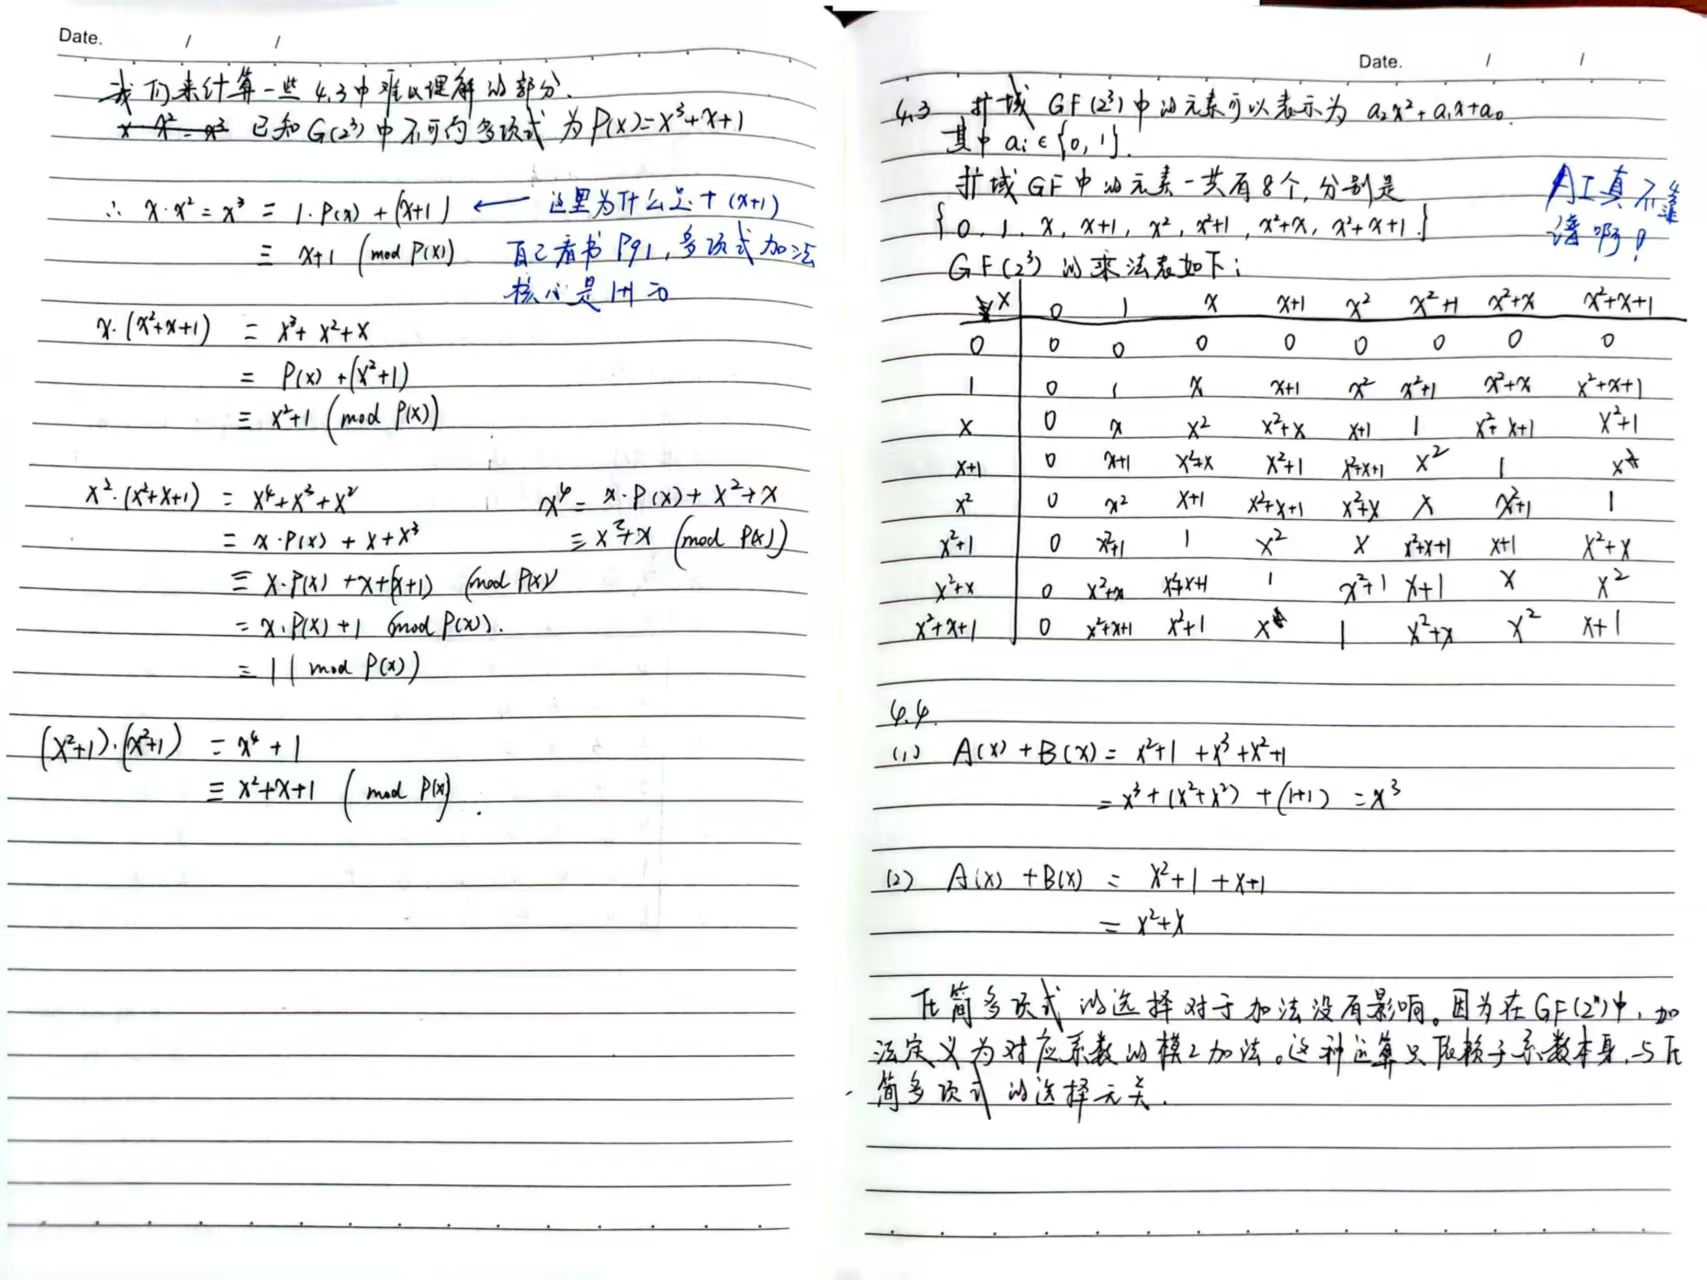 Date.    /    /
我们来计算一些 4.3中难以理解的部分.
已知G(2³)中不可约多项式为P(x)=x³+x+1
∴ x·x² = x³ = 1·P(x) + (x+1) ← 这里为什么是 + (x+1)
≡ x+1 (mod P(x)) 自己看书 P91, 多项式加法
核心是 1+1=0
x·(x²+x+1) = x³+x²+x
= P(x) +(x²+1)
≡ x²+1 (mod P(x))
x²·(x²+x+1) = x⁴+x³+x²    x⁴ = x·P(x) + x²+x
= x·P(x) + x+x³    ≡ x²+x (mod P(x))
≡ x·P(x) +x+(x+1) (mod P(x))
= x·P(x) +1 (mod P(x)).
≡ 1 ( mod P(x))
(x²+1)·(x²+1) = x⁴ + 1
≡ x²+x+1 ( mod P(x) .
Date.    /    /
4.3 扩域 GF(2³)中的元素可以表示为 a₂x²+a₁x+a₀.
其中 aᵢ∈{0,1}.
扩域GF中的元素一共有8个,分别是
{0, 1, x, x+1, x², x²+1, x²+x, x²+x+1.}
AI真不靠
谱啊!
GF(2³) 的乘法表如下:
x 0 1 x x+1 x² x²+1 x²+x x²+x+1
0 0 0 0 0 0 0 0 0
1 0 1 x x+1 x² x²+1 x²+x x²+x+1
x 0 x x² x²+x x+1 1 x²+x+1 x²+1
x+1 0 x+1 x²+x x²+1 x²+x+1 x² 1 x
x² 0 x² x+1 x²+x+1 x²+x x x²+1 1
x²+1 0 x²+1 1 x² x x²+x+1 x+1 x²+x
x²+x 0 x²+x x²+x+1 1 x²+1 x+1 x x²
x²+x+1 0 x²+x+1 x²+1 x 1 x²+x x² x+1
4.4.
(1) A(x) +B(x) = x²+1 +x³+x²+1
= x³+(x²+x²) +(1+1) =x³
(2) A(x) +B(x) = x²+1 +x+1
= x²+x
既简多项式的选择对于加法没有影响。因为在GF(2ⁿ)中,加
法定义为对应系数的模2加法。这种运算只依赖于系数本身,与既
简多项式的选择无关.